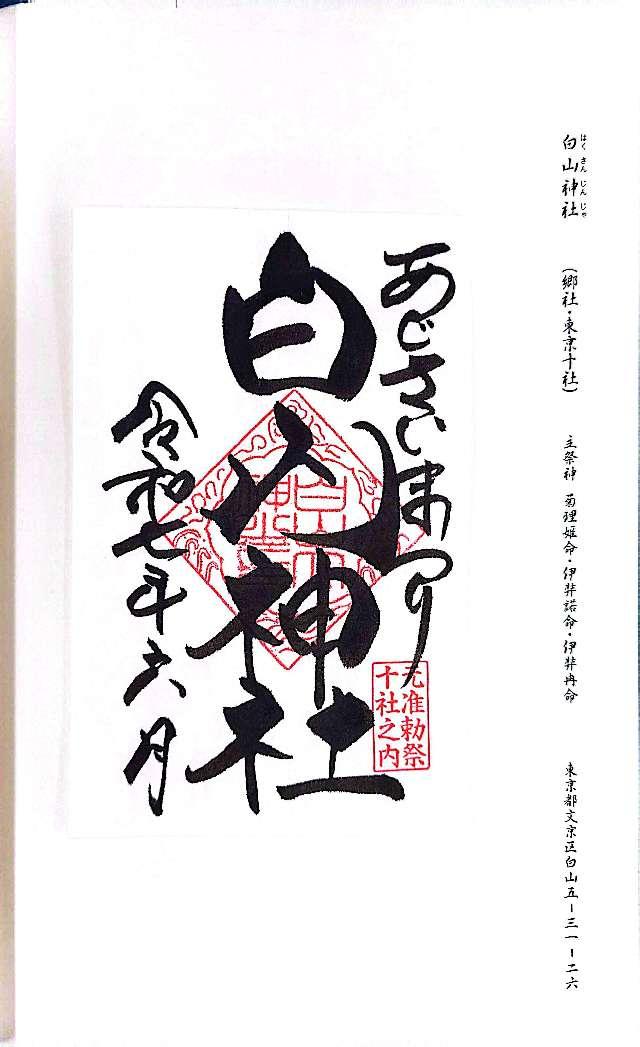 白山神社 はくさんじんじゃ (郷社・東京十社) 主祭神 菊理姫命・伊弉諾命・伊弉冉命 東京都文京区白山五ー三一ー二六
あじさいまつり
元准勅祭
十社之内
白山神社
白山
神社
令和七年六月